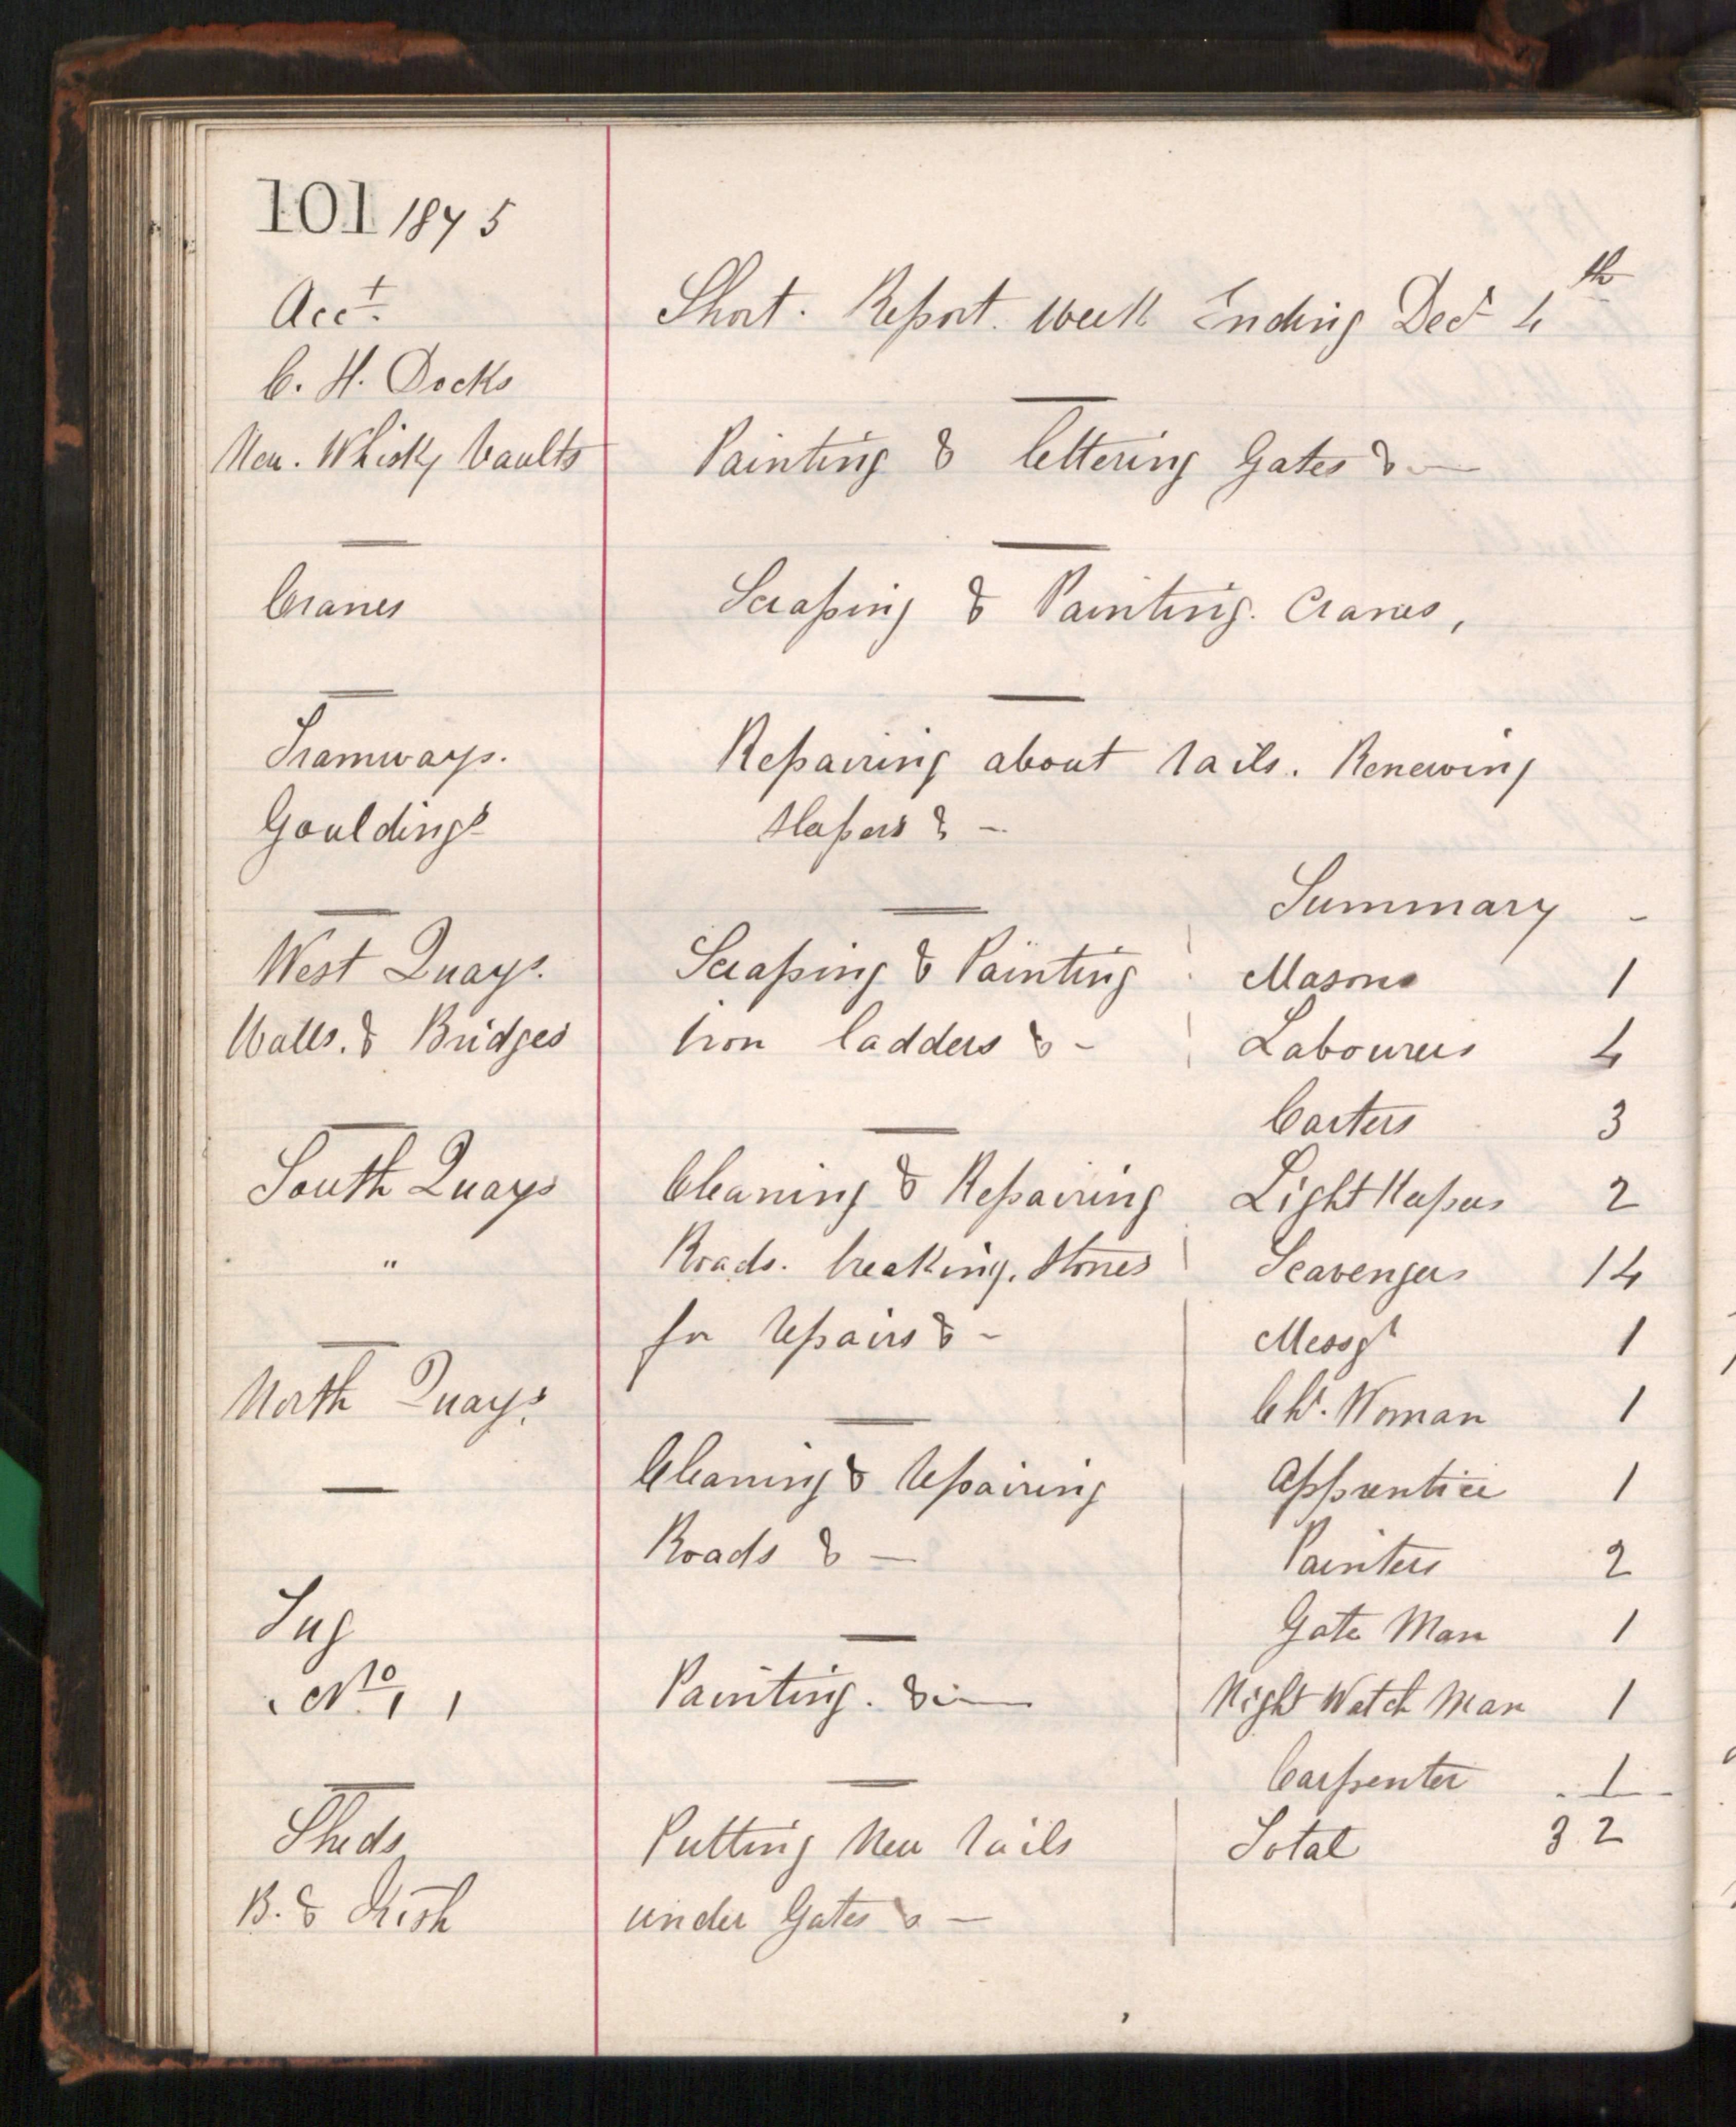 101 1875
Acct.
Short. Report. Week Ending Decr 4th
C. H. Docks
New. Whisky Vaults
Painting & lettering Gates & —
Cranes
Scraping & Painting. Cranes,
Tramways.
Repairing about rails. Renewing
Gouldings
sleepers & —
Summary -
West Quays.
Scraping & Painting
Masons 1
Walls. & Bridges
Iron ladders & -
Labourers 4
Carters 3
South Quays
Cleaning & Repairing
Light Keepers 2
"
Roads. breaking. Stones
Scavengers 14
for repairs & -
Messgr 1
North Quays.
Ch. Woman 1
Cleaning & repairing
Apprentice 1
Roads & —
Painters 2
Tug
Gate Man 1
No. 1
Painting. & —
Night Watch Man 1
Carpenter 1
Sheds
Putting New rails
Total 32
B. & Irish
under Gates & —